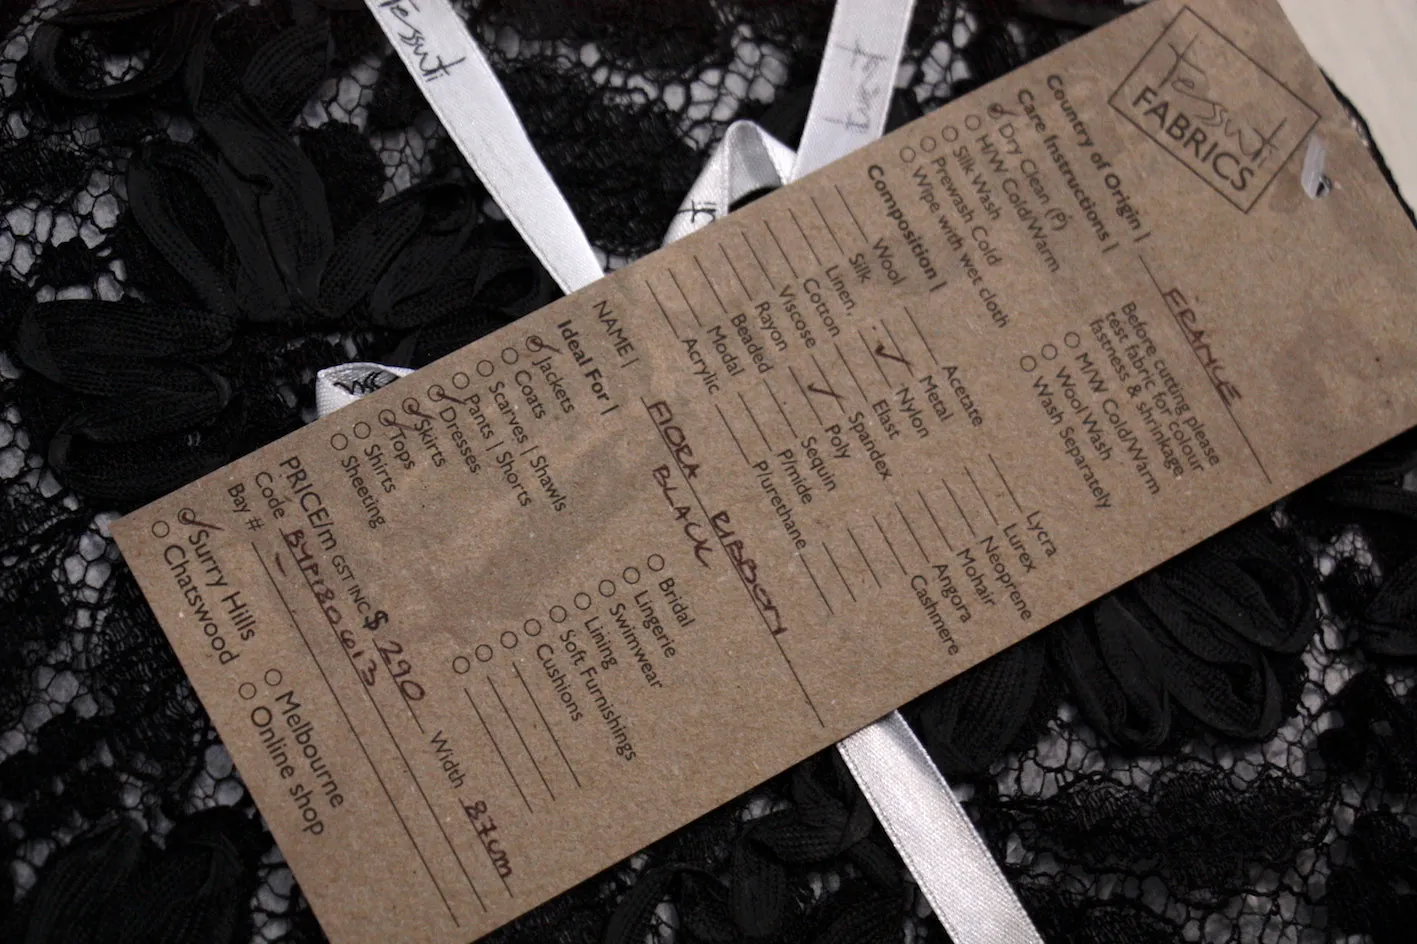 Tessuti
FABRICS
Country of Origin | FRANCE
Care Instructions |
Dry Clean (P)
H/W Cold/Warm
Silk Wash
Prewash Cold
Wipe with wet cloth
Before cutting please
test fabric for colour
fastness & shrinkage
M/W Cold/Warm
Wool Wash
Wash Separately
Composition |
Wool
Silk
Linen
Cotton
Viscose
Rayon
Beaded
Modal
Acrylic
Acetate
Metal
Nylon
Elast
Spandex
Poly
Sequin
P/mide
P/urethane
Lycra
Lurex
Neoprene
Mohair
Angora
Cashmere
NAME | FIORA RIBBON
BLACK
Ideal For |
Jackets
Coats
Scarves | Shawls
Pants | Shorts
Dresses
Skirts
Tops
Shirts
Sheeting
Bridal
Lingerie
Swimwear
Lining
Soft Furnishings
Cushions
PRICE/m GST INC $ 290 Width 87cm
Code BYP180613
Bay # -
Surry Hills
Chatswood
Melbourne
Online shop
Tessuti
Tessuti